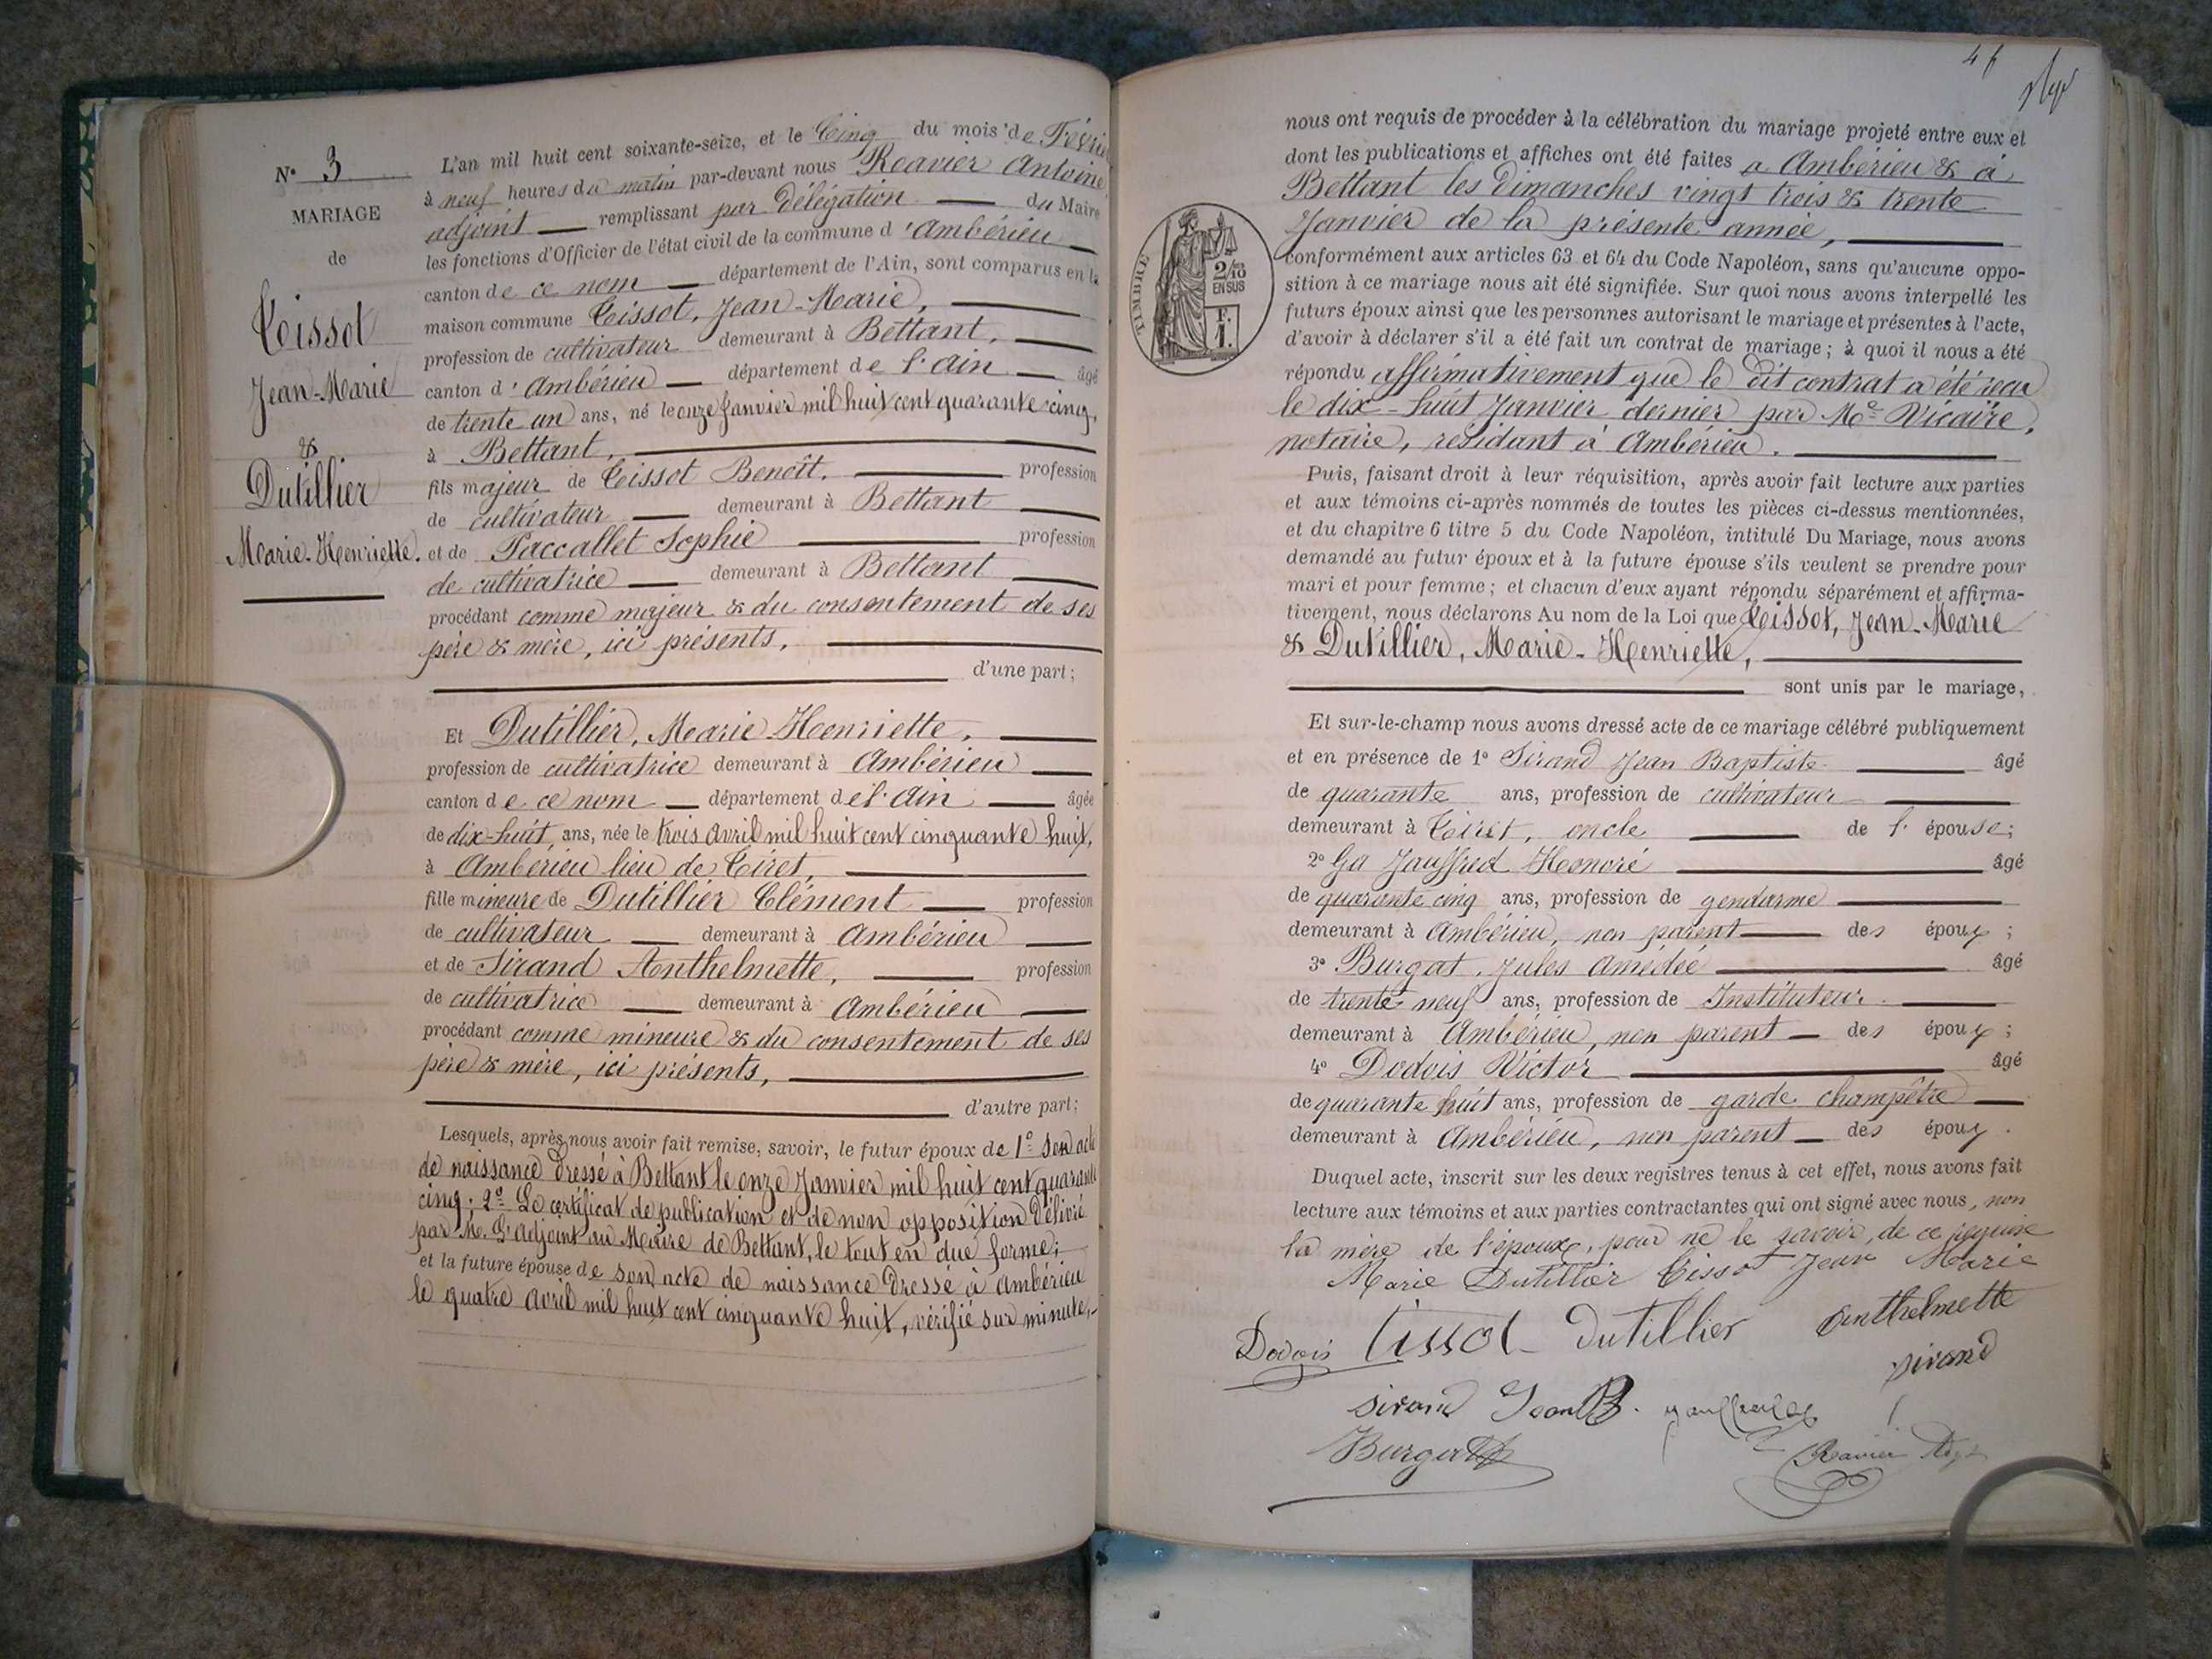 N° 3
MARIAGE
de
Tissot
Jean-Marie
&
Dutillier
Marie-Henriette.
L'an mil huit cent soixante-seize, et le Cinq du mois de Févrie
à neuf heures du matin par-devant nous Ravier Antoine
adjoint remplissant par délégation du Maire
les fonctions d'Officier de l'état civil de la commune d'Ambérieu
canton de ce nom département de l'Ain, sont comparus en la
maison commune Tissot, Jean-Marie,
profession de cultivateur demeurant à Bettant,
canton d'Ambérieu département de l'Ain âgé
de trente un ans, né le onze Janvier mil huit cent quarante cinq,
à Bettant,
fils majeur de Tissot Benoît, profession
de cultivateur demeurant à Bettant
et de Paccallet Sophie profession
de cultivatrice demeurant à Bettant
procédant comme majeur & du consentement de ses
père & mère, ici présents,
d'une part;
Et Dutillier, Marie-Henriette,
profession de cultivatrice demeurant à Ambérieu
canton de ce nom département de l'Ain âgée
de dix-huit, ans, née le trois avril mil huit cent cinquante huit,
à Ambérieu lieu de Tiret,
fille mineure de Dutillier Clément profession
de cultivateur demeurant à Ambérieu
et de Sirand Anthelmette, profession
de cultivatrice demeurant à Ambérieu
procédant comme mineure & du consentement de ses
père & mère, ici présents,
d'autre part;
Lesquels, après nous avoir fait remise, savoir, le futur époux de 1° Son acte
de naissance dressé à Bettant le onze Janvier mil huit cent quarante
cinq; 2° Le certificat de publication et de non opposition délivré
par M. L'adjoint au Maire de Bettant, le tout en due forme;
et la future épouse de son acte de naissance dressé à Ambérieu
le quatre avril mil huit cent cinquante huit, vérifié sur minute,-
nous ont requis de procéder à la célébration du mariage projeté entre eux et
dont les publications et affiches ont été faites a Ambérieu & à
Bettant les Dimanches vingt trois & trente
Janvier de la présente année,
TIMBRE
2/10
EN SUS
F.
1.
conformément aux articles 63 et 64 du Code Napoléon, sans qu'aucune oppo-
sition à ce mariage nous ait été signifiée. Sur quoi nous avons interpellé les
futurs époux ainsi que les personnes autorisant le mariage et présentes à l'acte,
d'avoir à déclarer s'il a été fait un contrat de mariage; à quoi il nous a été
répondu affirmativement que le dit contrat a été reçu
le dix-huit Janvier dernier par Me Vicaire,
notaire, résidant à Ambérieu.
Puis, faisant droit à leur réquisition, après avoir fait lecture aux parties
et aux témoins ci-après nommés de toutes les pièces ci-dessus mentionnées,
et du chapitre 6 titre 5 du Code Napoléon, intitulé Du Mariage, nous avons
demandé au futur époux et à la future épouse s'ils veulent se prendre pour
mari et pour femme; et chacun d'eux ayant répondu séparément et affirma-
tivement, nous déclarons Au nom de la Loi que Tissot, Jean-Marie
& Dutillier, Marie-Henriette,
sont unis par le mariage,
Et sur-le-champ nous avons dressé acte de ce mariage célébré publiquement
et en présence de 1° Sirand Jean Baptiste âgé
de quarante ans, profession de cultivateur
demeurant à Tiret, oncle de l'épouse;
2° Jauffred Honoré âgé
de quarante cinq ans, profession de gendarme
demeurant à Ambérieu, non parent des époux;
3° Burgat, Jules Amédée âgé
de trente neuf ans, profession de Instituteur.
demeurant à Ambérieu, non parent des époux;
4° Dodois Victor âgé
de quarante huit ans, profession de garde champêtre
demeurant à Ambérieu, non parent des époux.
Duquel acte, inscrit sur les deux registres tenus à cet effet, nous avons fait
lecture aux témoins et aux parties contractantes qui ont signé avec nous, non
la mère de l'époux, pour ne le savoir, de ce requise
Marie Dutillier Tissot Jean Marie
Dodois Tissot Dutillier Anthelmette
Sirand
Sirand Jean B.
Burgat
Ravier